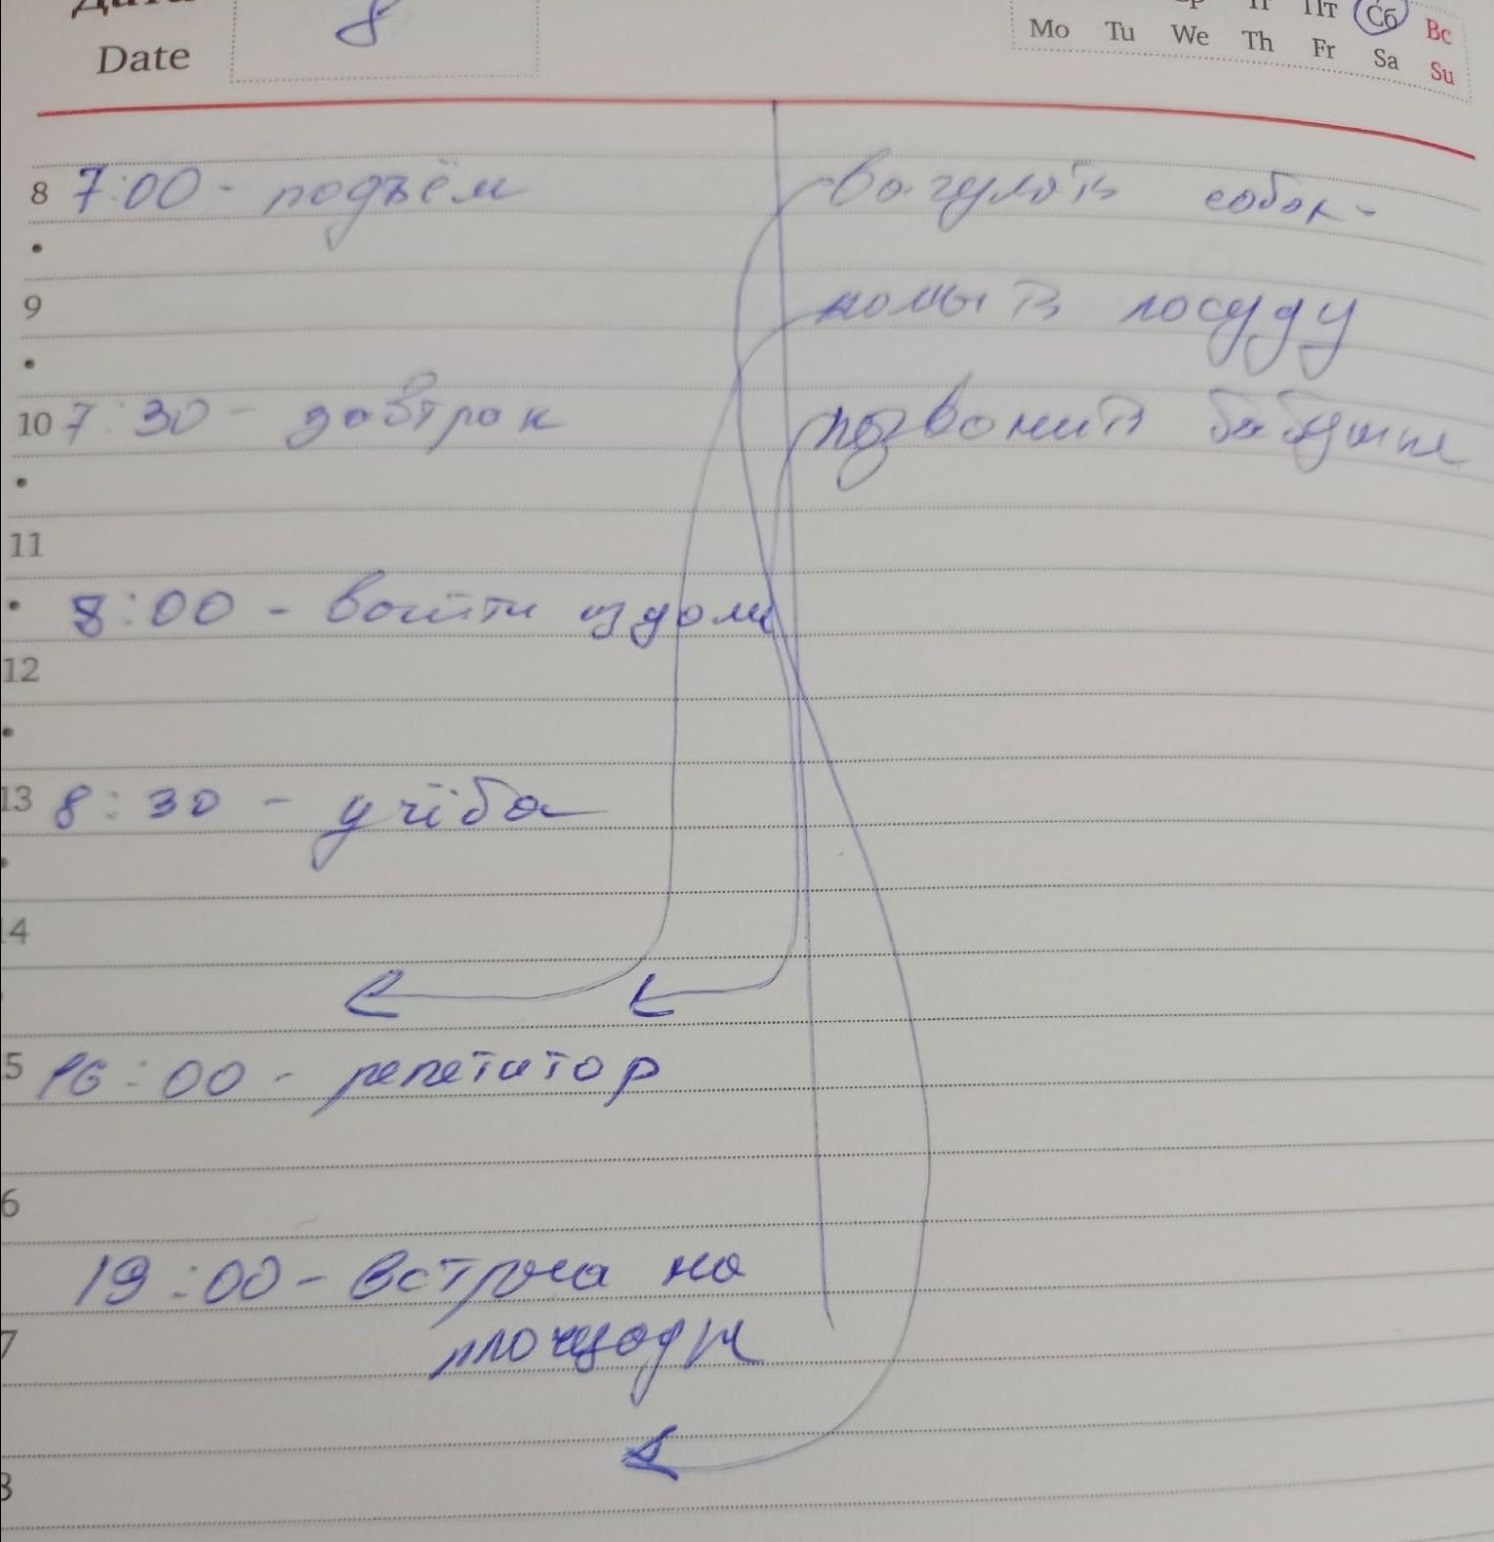 Дата
Date 8
Пт Сб Вс
Mo Tu We Th Fr Sa Su
8 7:00 - подъём
выгулять собак-
9
помыть посуду
10 7:30 - завтрак
позвонить бабушке
11
8:00 - выйти из дома
12
13 8:30 - учёба
14
5 16:00 - репетитор
6
19:00 - встреча на
7 площади
8